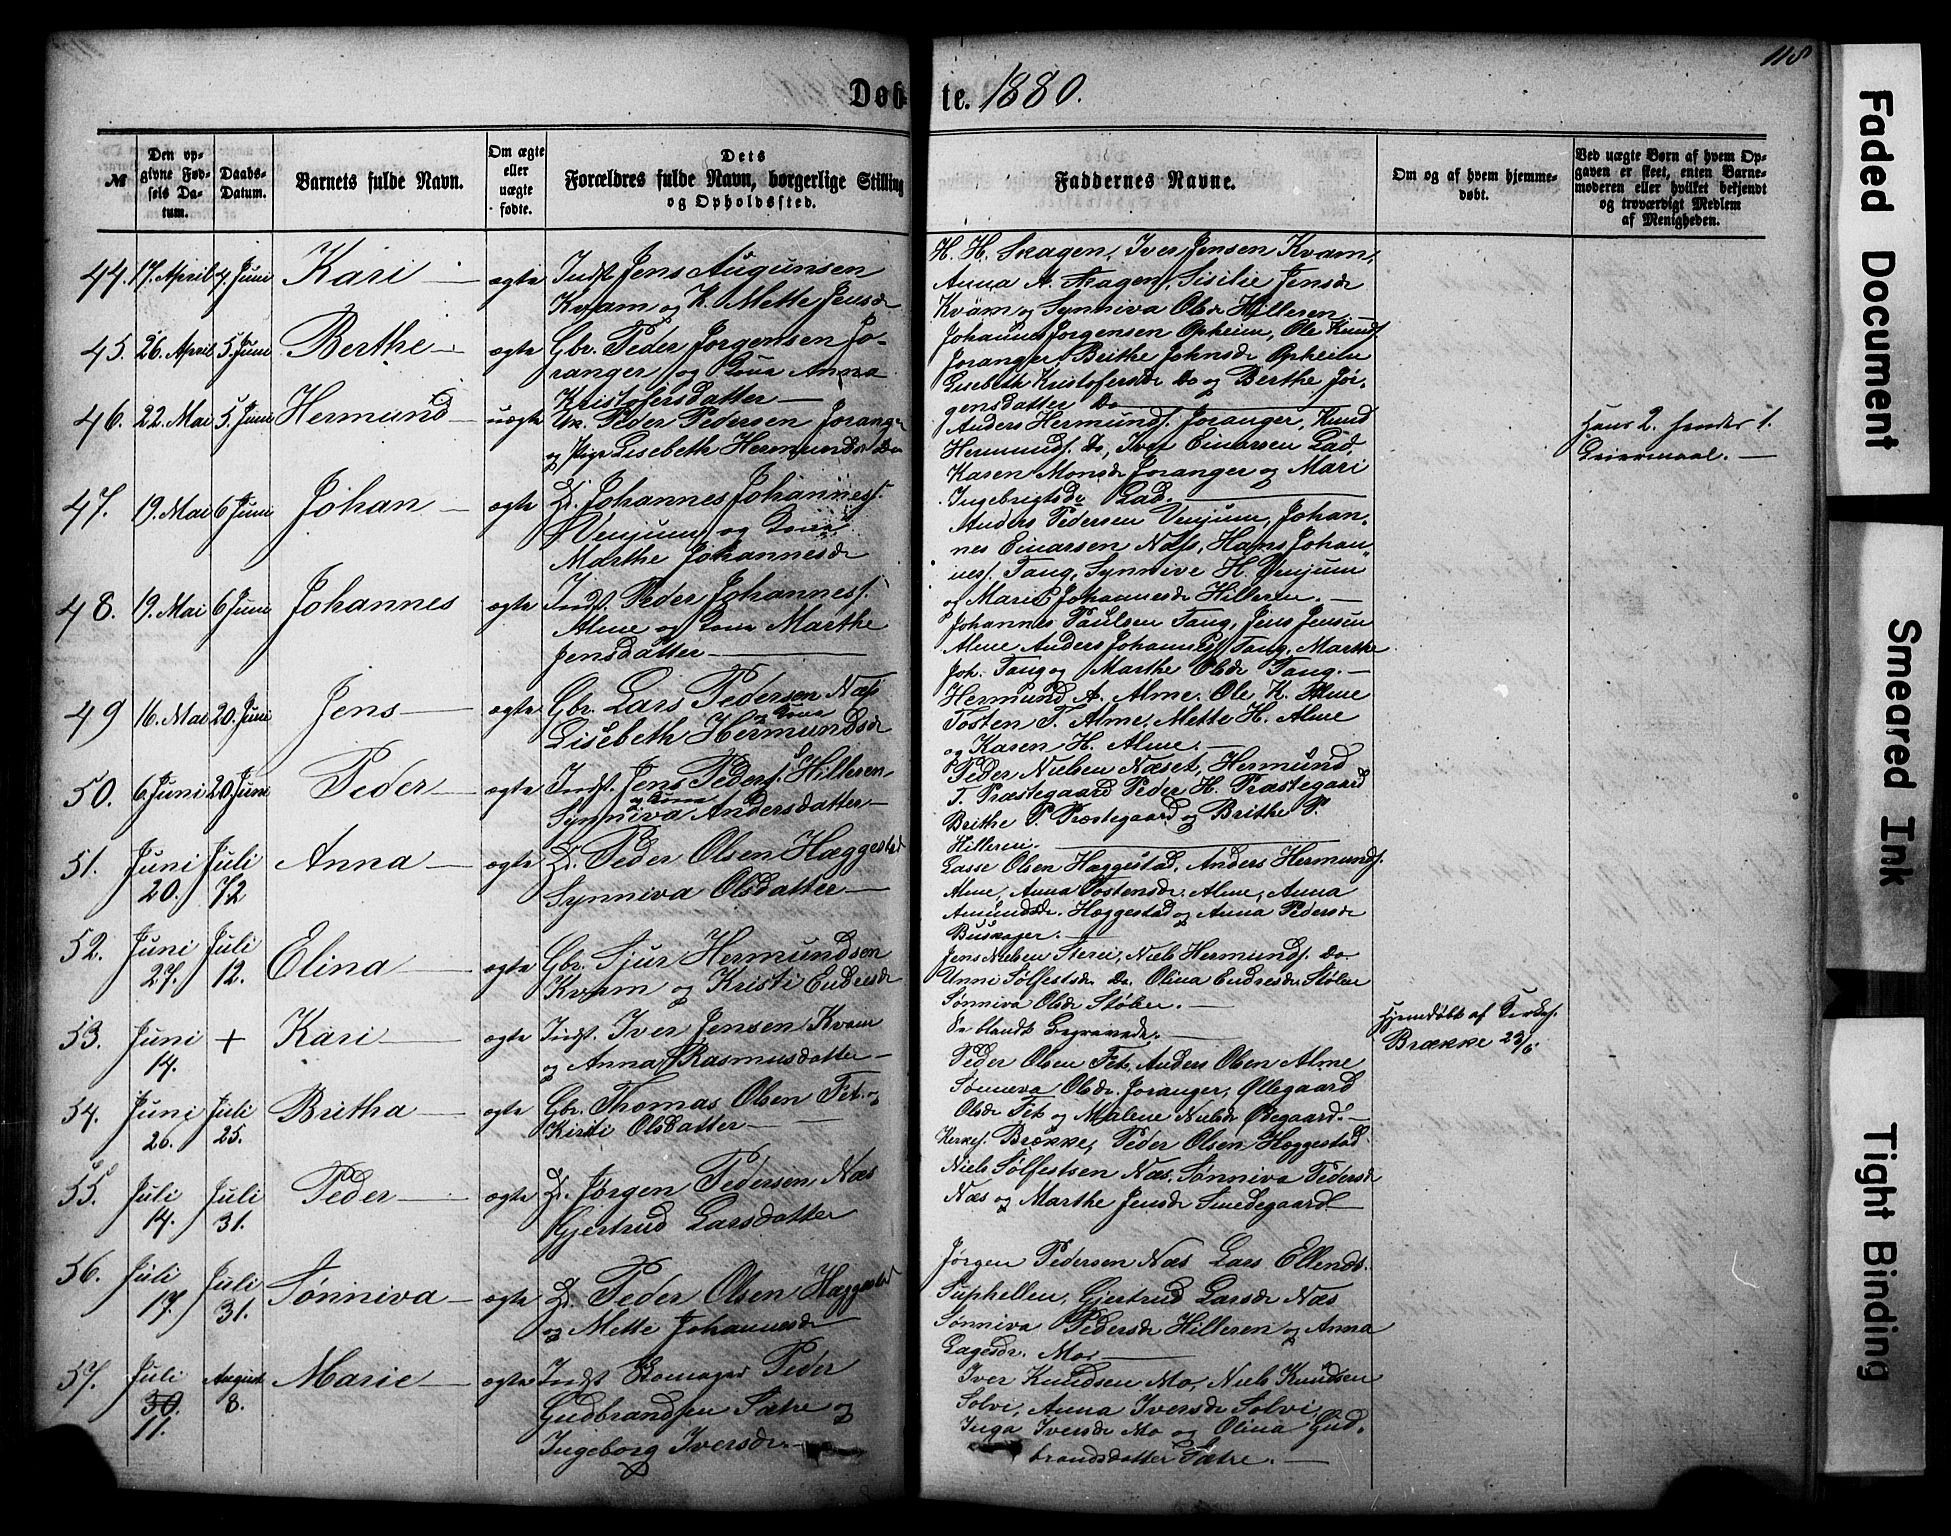 118
Døb-
te. 1880.
№
Den op-
givne Fød-
sels Da-
tum.
Daabs-
Datum.
Barnets fulde Navn.
Om ægte
eller
uægte
fødte.
Dets
Forældres fulde Navn, borgerlige Stilling
og Opholdssted.
Faddernes Navne.
Om og af hvem hjemme-
døbt.
Ved uægte Børn af hvem Op-
gaven er skeet, enten Barne-
moderen eller hvilket bekjendt
og troværdigt Medlem
af Menigheden.
44. 17. April 4. Juni Kari ægte
Indst. Jens Augunsen
Kvam og K. Mette Jensdr
H. H. Skagen, Iver Jensen Kvam,
Anna A. Skagen, Sisilie Jensdr
Kvam og Synniva Olsdr Hilleren
45. 26. April 5. Juni Berthe ægte
Gbr. Peder Jørgensen Jo-
ranger og Kone Anna
Kristofersdatter
Johannes Jørgensen Opheim, Ole Knuds.
Joranger Brithe Johnsdr Opheim
Lisebeth Kristofersdr Do og Berthe Jør-
gensdatter Do
46. 22. Mai 5. Juni Hermund uægte
Peder Pedersen Joranger
og Pige Lisebeth Hermundsdr Do
Anders Hermunds. Joranger, Knud
Hermunds. Do, Iver Einarsen Gad,
Karen Monsdr Joranger og Mari
Ingebrigtsdr Gad.
Hans 2. hendes 1.
Leiermaal.
47. 19. Mai 6 Juni Johan ægte
Ds. Johannes Johanness.
Venjum og Kone
Marthe Johannesdr
Anders Pedersen Venjum, Johan-
nes Einarsen Næss, Hans Johan-
ness. Tang, Synnive H. Venjum
og Marie Johannesdr Hilleren.
48. 19. Mai 6 Juni Johannes ægte
Indst. Peder Johanness.
Alme og Kone Marthe
Jensdatter
Johannes Paulsen Tang, Jens Jensen
Alme Anders Johannes. Tang, Marthe
Joh. Tang og Marthe Olsdr Tang.
49 16. Mai 20. Juni Jens ægte
Gbr. Lars Pedersen Næss
og Kone
Lisebeth Hermundsdr
Hermund A. Alme. Ole K. Alme
Tosten T. Alme, Mette H. Alme
og Karen H. Alme.
50. 6 Juni 20 Juni Peder ægte
Indst. Jens Peders. Hilleren
og Kone
Synniva Andersdatter
Peder Nielsen Næset, Hermund
T. Præstegaard Peder H. Præstegaard
Brithe P. Præstegaard og Brithe P.
Hilleren.
51. Juni 20. Juli 12 Anna ægte
Ds. Peder Olsen Hæggestad
Synniva Olsdatter
Lasse Olsen Hæggestad, Anders Hermunds.
Alme, Anna Tostensdr. Alme, Anna
Amundsdr. Hæggestad og Anna Pedersdr
Buskager.
52. Juni 27. Juli 12. Elina ægte
Gbr. Sjur Hermundsen
Kvam og Kristi Endresdr
Jens Nielsen Steroi, Niels Hermunds. Do
Unni Sølfestsdr Do. Olina Endresdr. Stølen
Sønniva Olsdr Støhen.
53. Juni 14. + Kari ægte
Indst. Iver Jensen Kvam
og Anna Rasmusdatter
Se blandt Begravede.
Hjemdøbt af Kirkes.
Brække 23/6
54. Juni 26. Juli 25. Britha ægte
Gbr. Thomas Olsen Fet og
Kirsti Olsdatter
Peder Olsen Fet, Anders Olsen Alme
Sønneva Olsdr. Joranger, Øllegaard
Olsdr Fet og Malene Nielsdr Ødegaard.
55. Juli 14. Juli 31. Peder ægte
Ds. Jørgen Pedersen Næs
Gjertrud Larsdatter
Kirkes. Brække, Peder Olsen Hæggestad
Niels Sølfestsen Næs, Sønniva Pedersdr
Næs og Marthe Jensdr Smedegaard
56. Juli 17. Juli 31. Sønniva ægte
Ds. Peder Olsen Hæggestad
og Mette Johannesdr
Jørgen Pedersen Næs Lars Ellends.
Suphellen, Gjertrud Larsdr Næs
Sønniva Pedersdr Hilleren og Anna
Lagesdr. Mo
57. Juli 30. 11. August 8. Marie ægte
Indst Skomager Peder
Gudbrandsen Sætre og
Ingeborg Iversdr.
Iver Knudsen Mo, Niels Knudsen
Solvi, Anna Iversdr Solvi,
Inga Iversdr Mo og Olina Gud-
brandsdatter Sætre.
Faded Document
Smeared Ink
Tight Binding